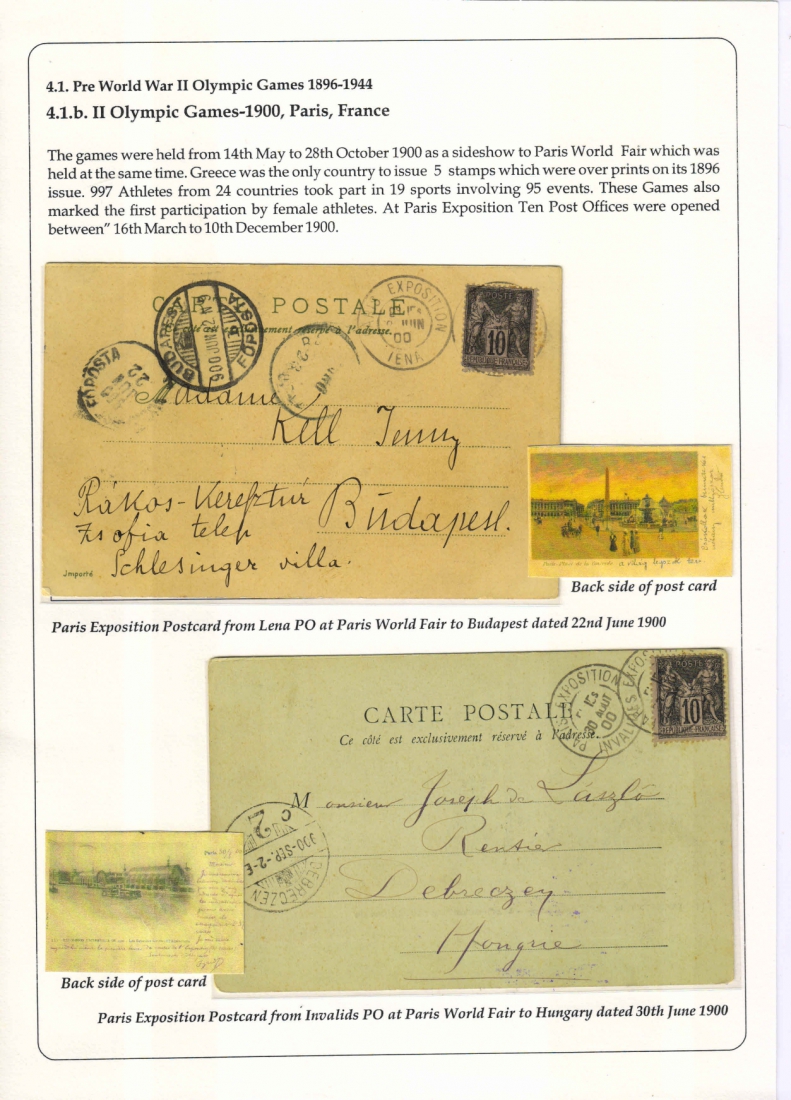 4.1. Pre World War II Olympic Games 1896-1944
4.1.b. II Olympic Games-1900, Paris, France
The games were held from 14th May to 28th October 1900 as a sideshow to Paris World Fair which was
held at the same time. Greece was the only country to issue 5 stamps which were over prints on its 1896
issue. 997 Athletes from 24 countries took part in 19 sports involving 95 events. These Games also
marked the first participation by female athletes. At Paris Exposition Ten Post Offices were opened
between" 16th March to 10th December 1900.
POSTALE
réservé à l'adresse.
EXPOSITION
JUIN
00
IENA
POSTE
10
RÉPUBLIQUE FRANÇAISE
BUDAPEST
FŐPOSTA
FŐPOSTA
22
Madame
Kell Jenny
Rákos-Keresztúr
Budapest.
Zsofia telep
Schlesinger villa.
Importé
Back side of post card
Paris Exposition Postcard from Lena PO at Paris World Fair to Budapest dated 22nd June 1900
CARTE POSTALE
Ce côté est exclusivement réservé à l'adresse.
PARIS EXPOSITION
30 AOUT
00
INVALIDES
POSTE
10
RÉPUBLIQUE FRANÇAISE
Monsieur Joseph de László
Rentier
Debreczen
Hongrie
900-SEP.-2-E
DEBRECZEN
Back side of post card
Paris Exposition Postcard from Invalids PO at Paris World Fair to Hungary dated 30th June 1900